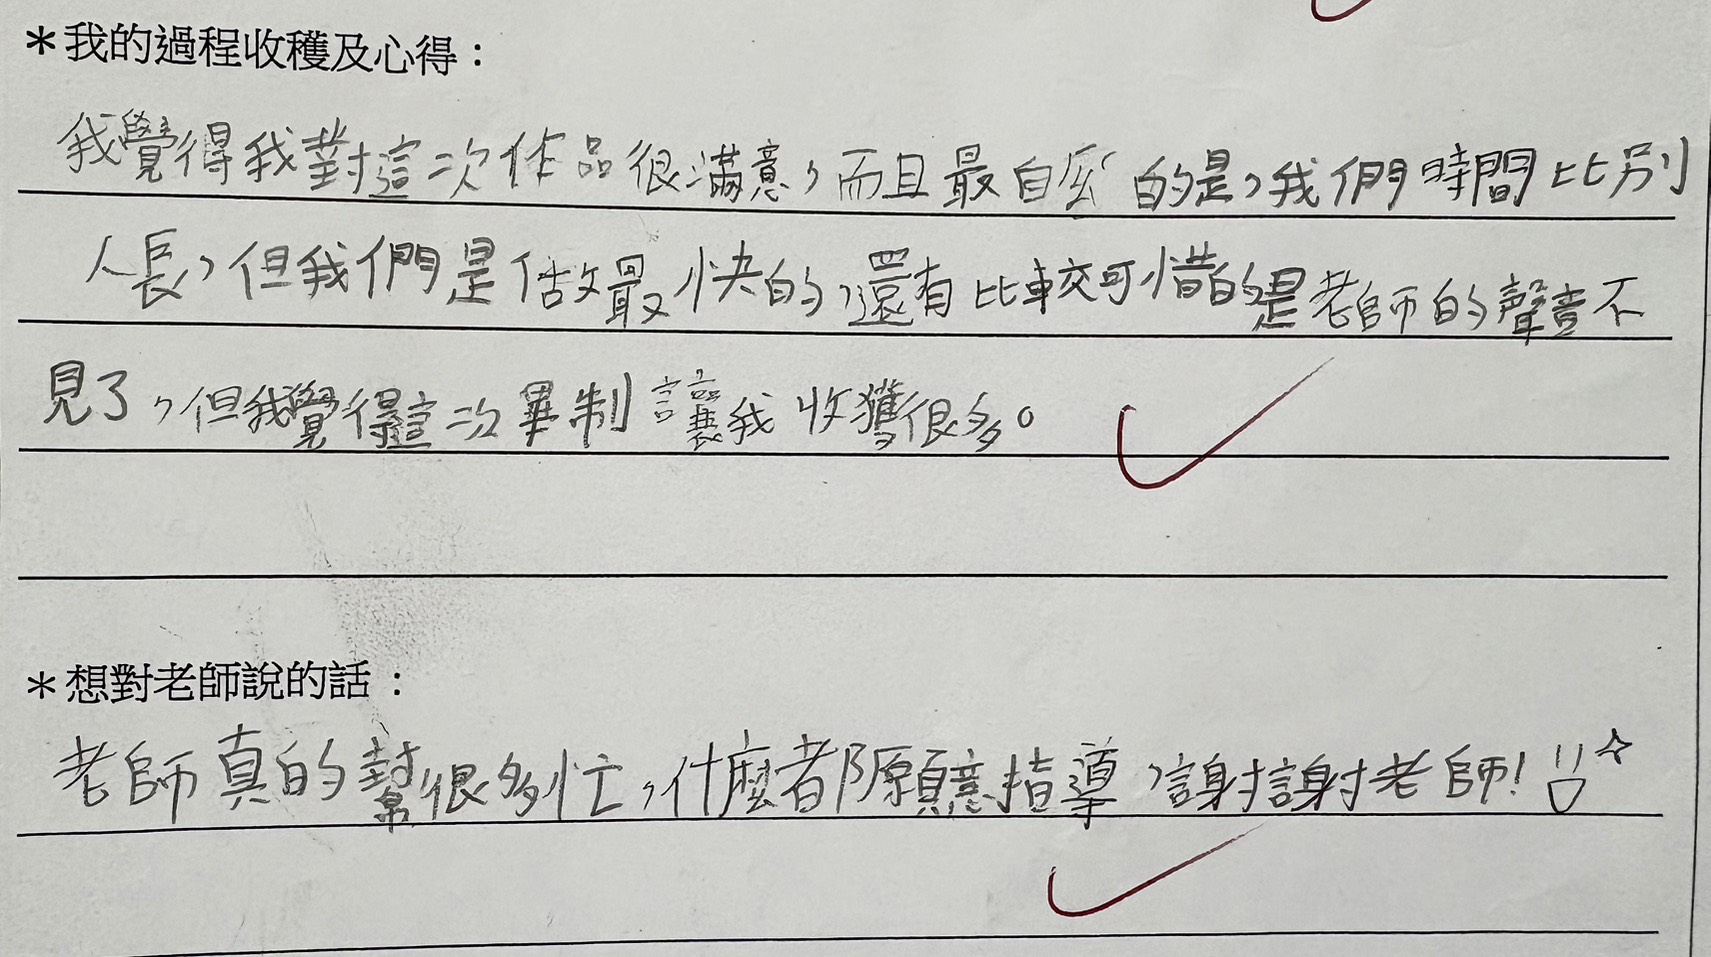 ＊我的過程收穫及心得：
我覺得我對這次作品很滿意，而且最自豪的是，我們時間比別
人長，但我們是做最快的，還有比較可惜的是老師的聲音不
見了，但我覺得這次畢制讓我收獲很多。
＊想對老師說的話：
老師真的幫很多忙，什麼都願意指導，謝謝老師！